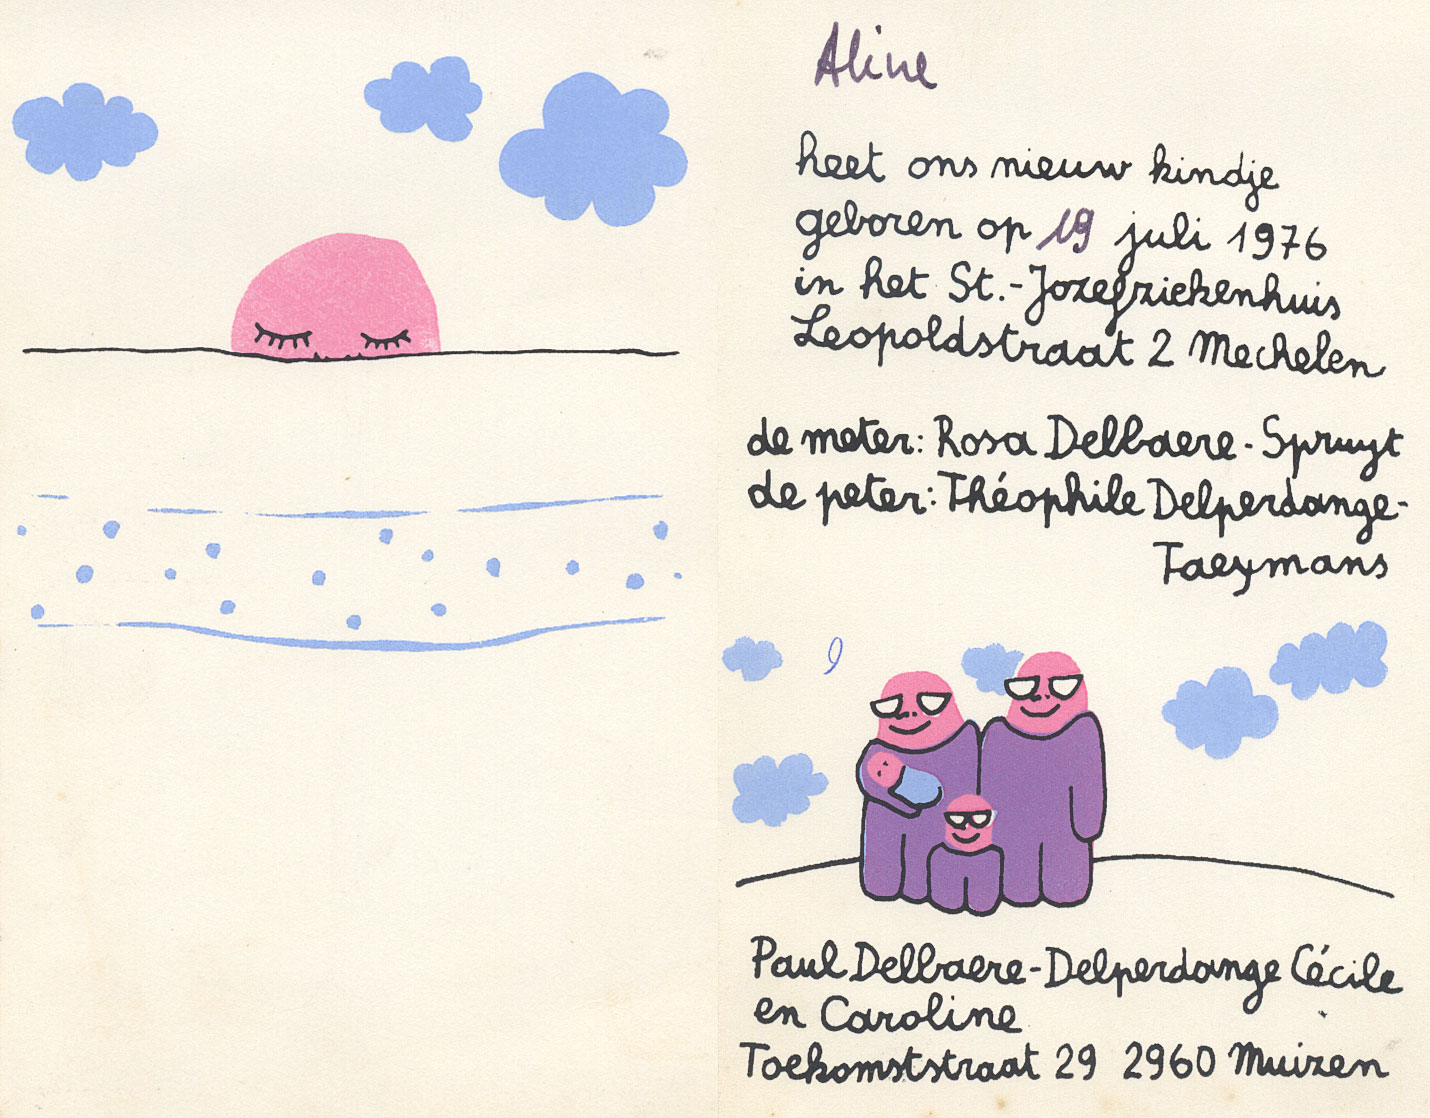 Aline
heet ons nieuw kindje
geboren op 19 juli 1976
in het St.-Jozefziekenhuis
Leopoldstraat 2 Mechelen
de meter: Rosa Delbaere-Spruyt
de peter: Théophile Delperdange-
Taeymans
Paul Delbaere-Delperdange Cécile
en Caroline
Toekomststraat 29 2960 Muizen